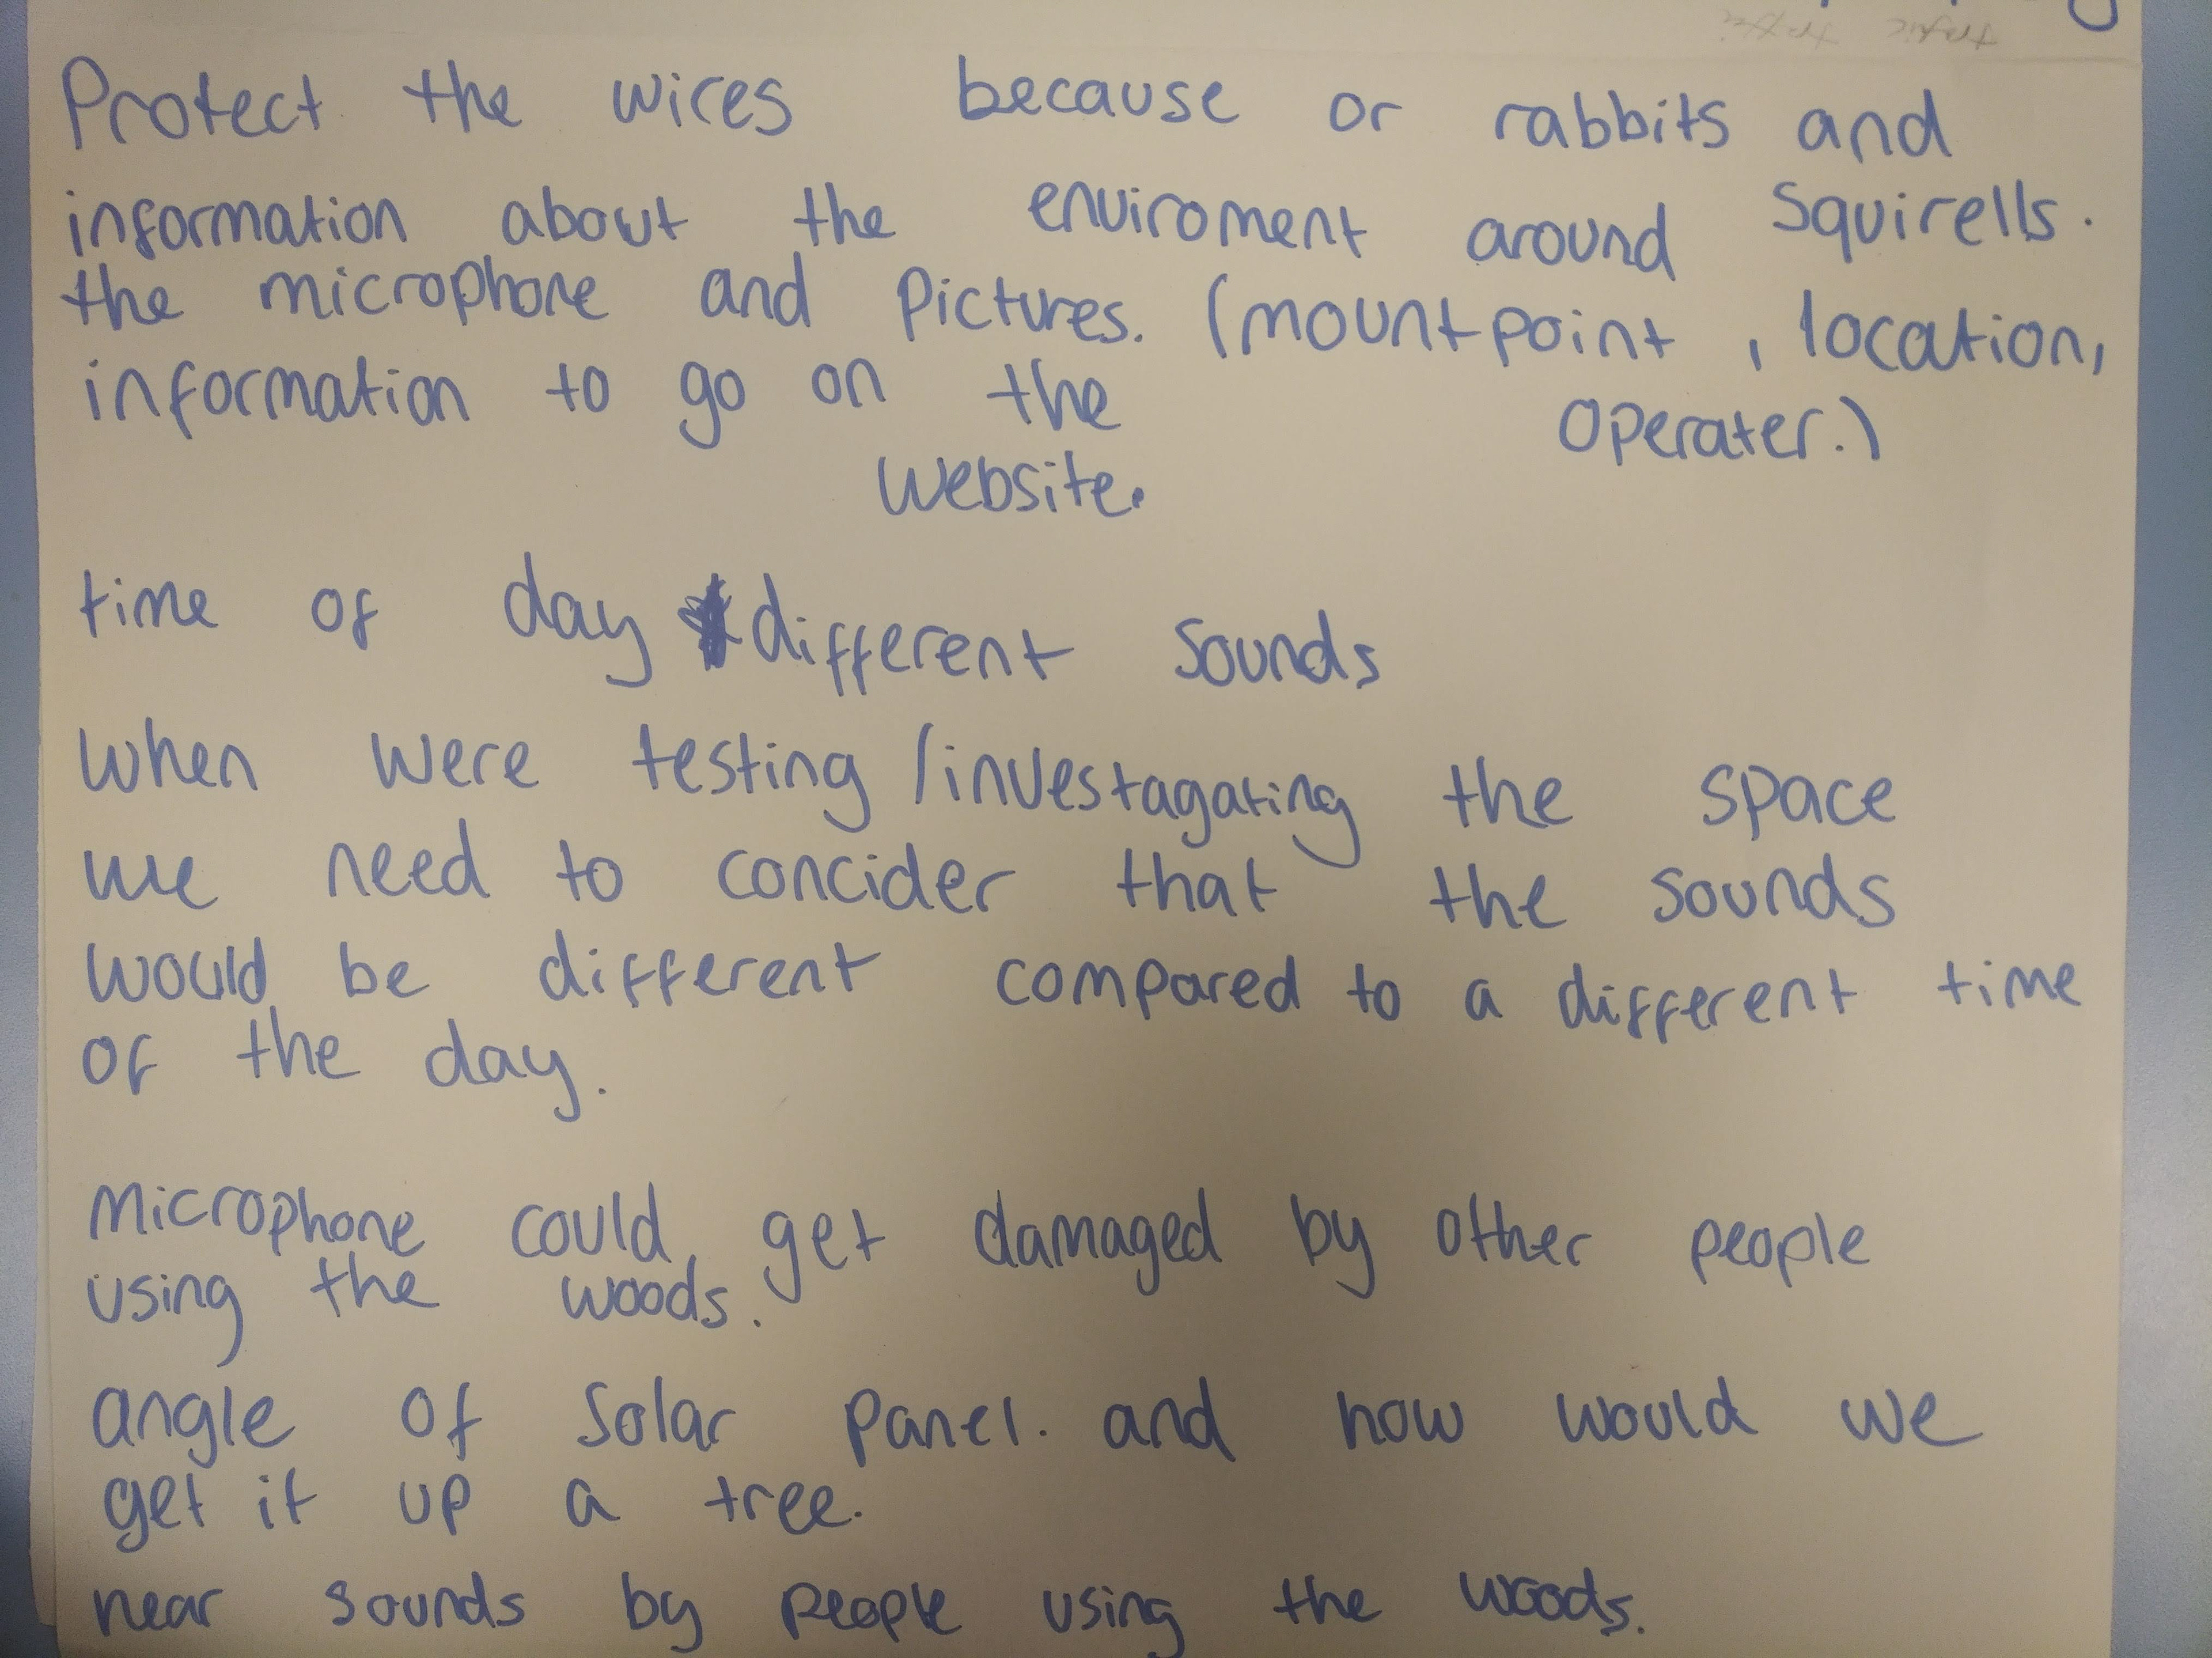 Protect the wires because or rabbits and
squirells.
information about the enviroment around
the microphone and pictures. (mountpoint, location,
operater.)
information to go on the
website.
time of day different sounds
when were testing /investagating the space
we need to concider that the sounds
would be different compared to a different time
of the day.
Microphone could get damaged by other people
using the woods.
angle of solar panel. and how would we
get it up a tree.
near sounds by people using the woods.